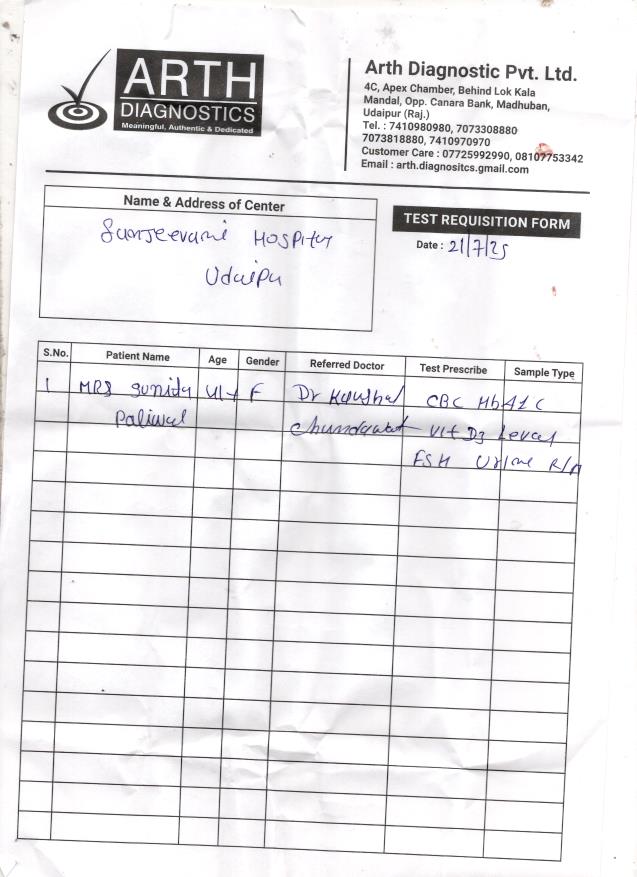 ARTH
DIAGNOSTICS
Meaningful, Authentic & Dedicated
Arth Diagnostic Pvt. Ltd.
4C, Apex Chamber, Behind Lok Kala
Mandal, Opp. Canara Bank, Madhuban,
Udaipur (Raj.)
Tel. : 7410980980, 7073308880
7073818880, 7410970970
Customer Care : 07725992990, 08107753342
Email : arth.diagnositcs.gmail.com
Name & Address of Center
Sanjeevani Hospital
Udaipur
TEST REQUISITION FORM
Date : 21/7/25
S.No. Patient Name Age Gender Referred Doctor Test Prescribe Sample Type
1 MRS Sunita F Dr Kaushal CBC HbA1C
Paliwal Chundawat Vit D3 Level
FSH Urine R/M